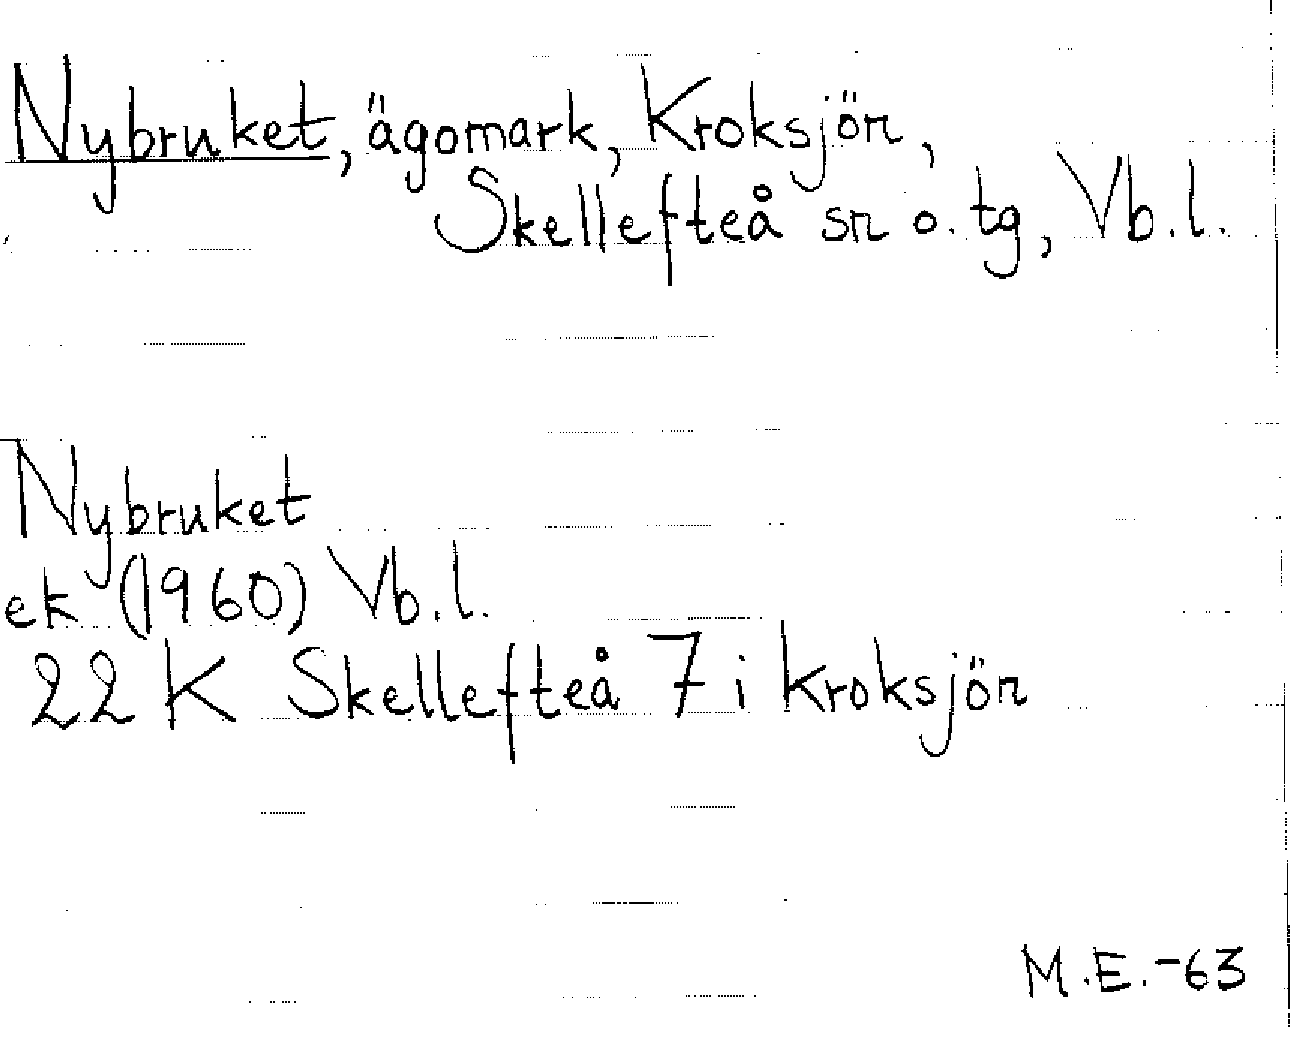 Nybruket, ägomark, Kroksjön,
Skellefteå sn o. tg, Vb.l.
Nybruket
ek (1960) Vb.l.
22 K Skellefteå 7 i Kroksjön
M.E.-63